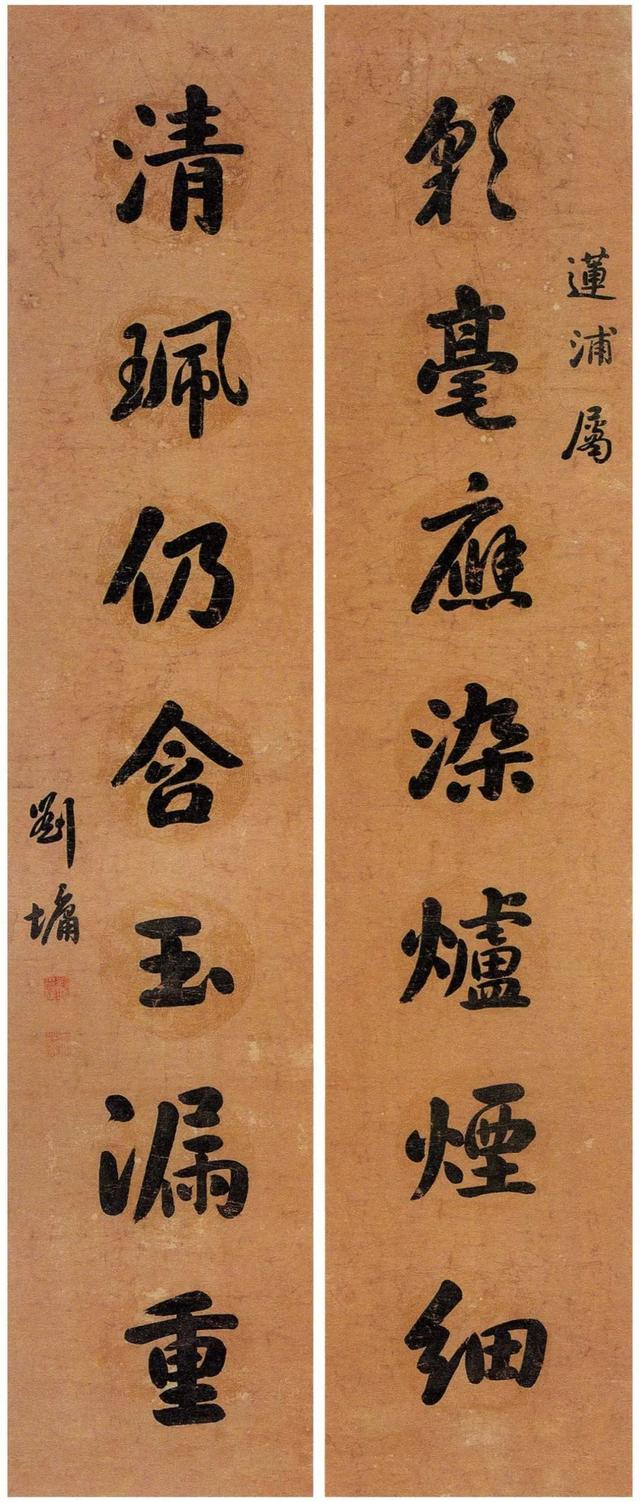 蓮浦屬
彩毫應染爐煙細
清珮仍含玉漏重
劉墉